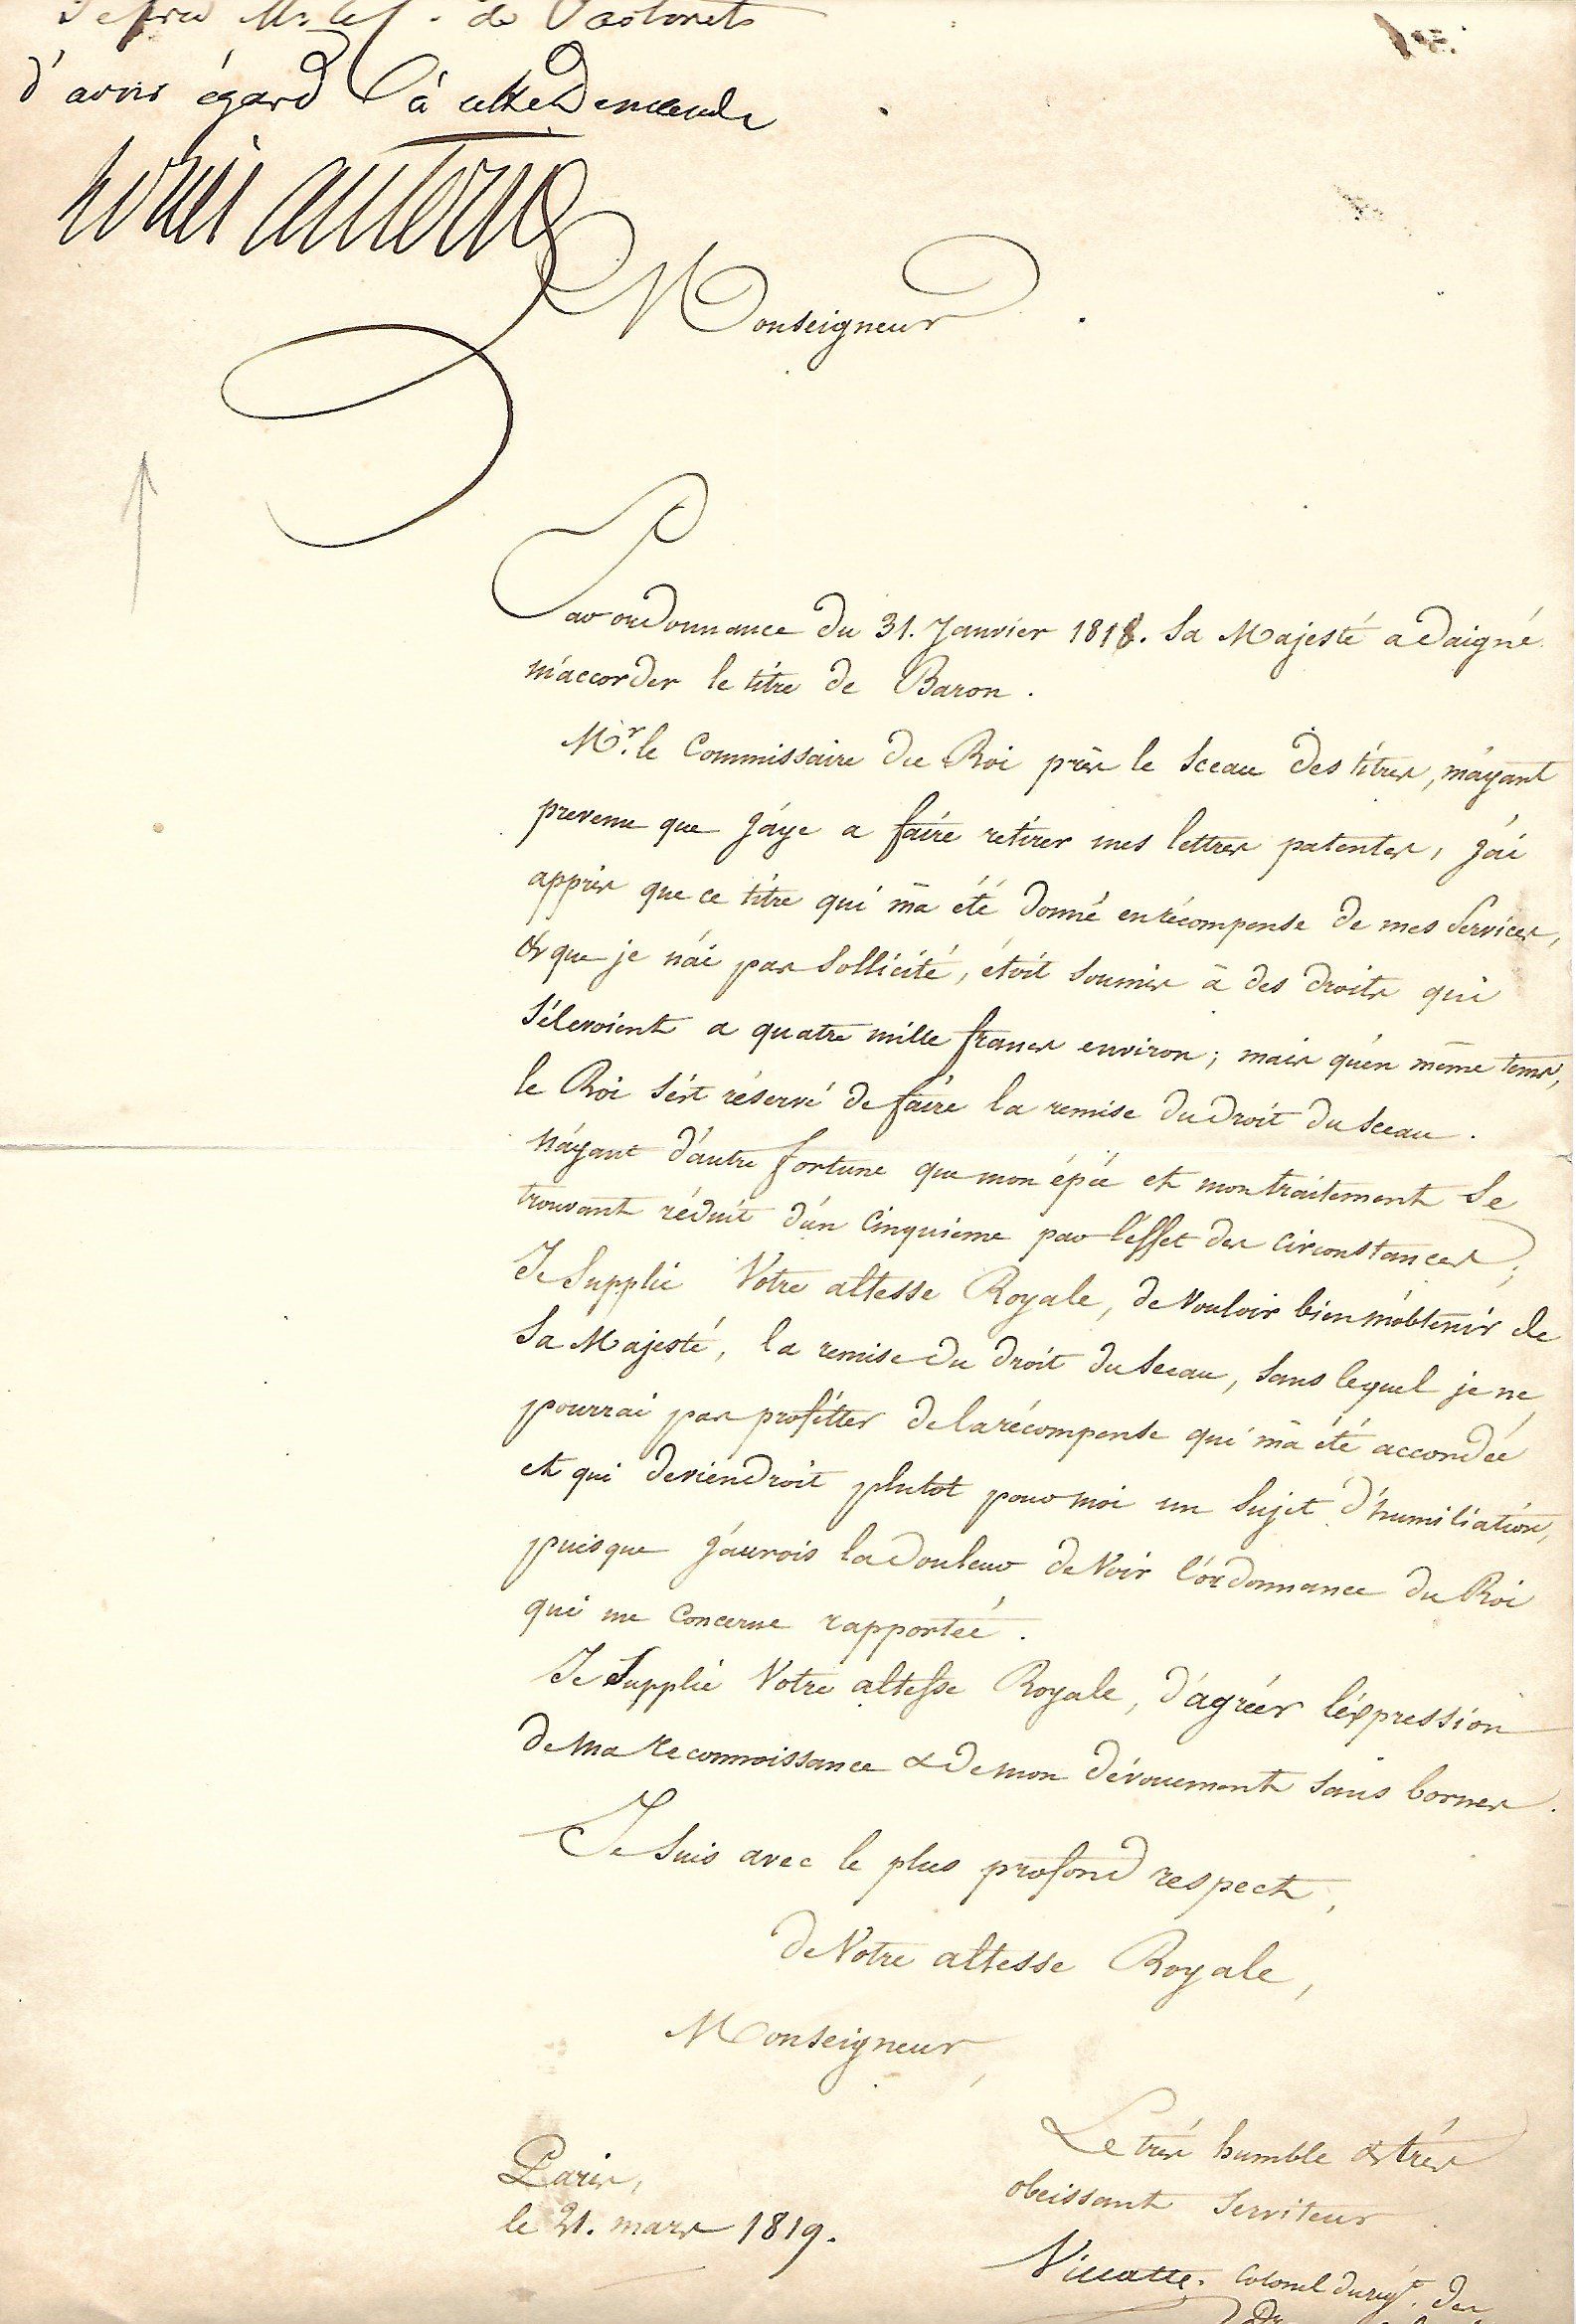 de Pastoret
d'avoir égard à cette demande
Louis antoine
Monseigneur
Par ordonnance du 31. Janvier 1818. Sa Majesté a daigné
m'accorder le titre de Baron.
Mr. le Commissaire du Roi près le Sceau des titres, m'ayant
prevenu que j'aye a faire retirer mes lettres patentes, j'ai
appris que ce titre qui m'a été donné en récompense de mes Services,
& que je n'ai pas Sollicité, étoit Soumis à des droits qui
S'élevoient a quatre mille francs environ; mais qu'en même tems,
le Roi s'est réservé de faire la remise du droit du Sceau.
N'ayant d'autre fortune que mon épée et mon traitement Se
trouvant réduit d'un Cinquieme par l'effet des Circonstances;
Je Supplie Votre altesse Royale, de Vouloir bien m'obtenir de
Sa Majesté, la remise du droit du Sceau, Sans lequel je ne
pourrai pas profitter de la récompense qui m'a été accordée
et qui deviendroit plutot pour moi un Sujet d'humiliation,
puisque j'aurois la douleur de Voir l'ordonnance du Roi
qui me Concerne rapportée.
Je Supplie Votre altesse Royale, d'agréer l'éxpression
de Ma reconnoissance & de mon dévouement Sans bornes.
Je Suis avec le plus profond respect,
de Votre altesse Royale,
Monseigneur,
Le très humble & très
obeissant Serviteur
Paris,
le 21. mars 1819.
Villatte. Colonel du régt. des